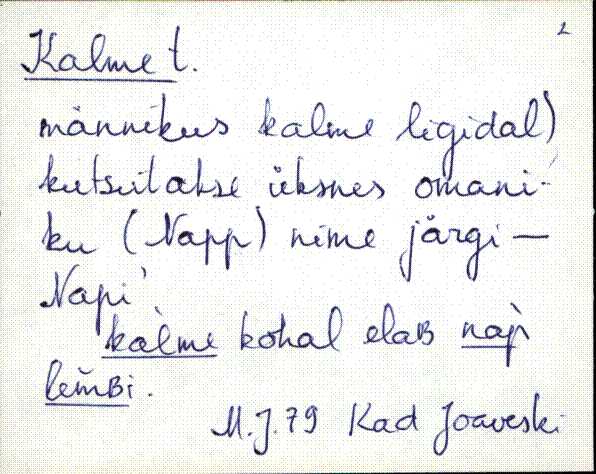 2
Kalme t.
männikus kalme ligidal)
kutsutakse üksnes omani-
ku (Napp) nime järgi —
Napi
kalme kohal elab nap̀
lem̆bi.
M.J.79 Kad Joaveski